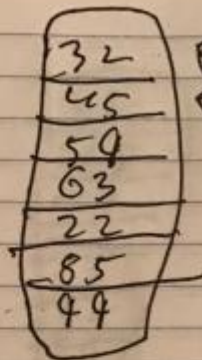 32
45
59
63
22
85
99